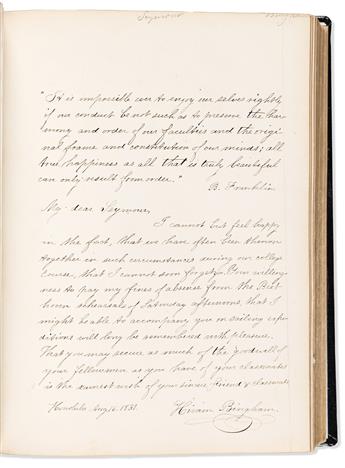 Seymour
"It is impossible ever to enjoy ourselves rightly
if our conduct be not such as to preserve the har-
mony and order of our faculties and the origi-
nal frame and constitution of our minds; all
true happiness as all that is truly beautiful
can only result from order."
B. Franklin
My dear Seymour,
I cannot but feel happy
in the fact, that we have often been thrown
together in such circumstances during our college
course, that I cannot soon forget. Your willing-
ness to pay my fines of absence from the Beet-
hoven rehearsals of Saturday afternoons, that I
might be able to accompany you on sailing expe-
ditions will long be remembered with pleasure.
That you may secure as much of the goodwill of
your fellowmen as you have of your classmates
is the earnest wish of your sincere friend & classmate
Honolulu Aug 16. 1831.
Hiram Bingham.